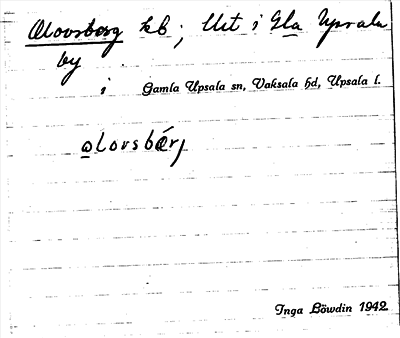 Olovsborg kb; Utt i Gla Upsala
by
i Gamla Upsala sn, Vaksala hd, Upsala l.
olovsbærj
Inga Löwdin 1942